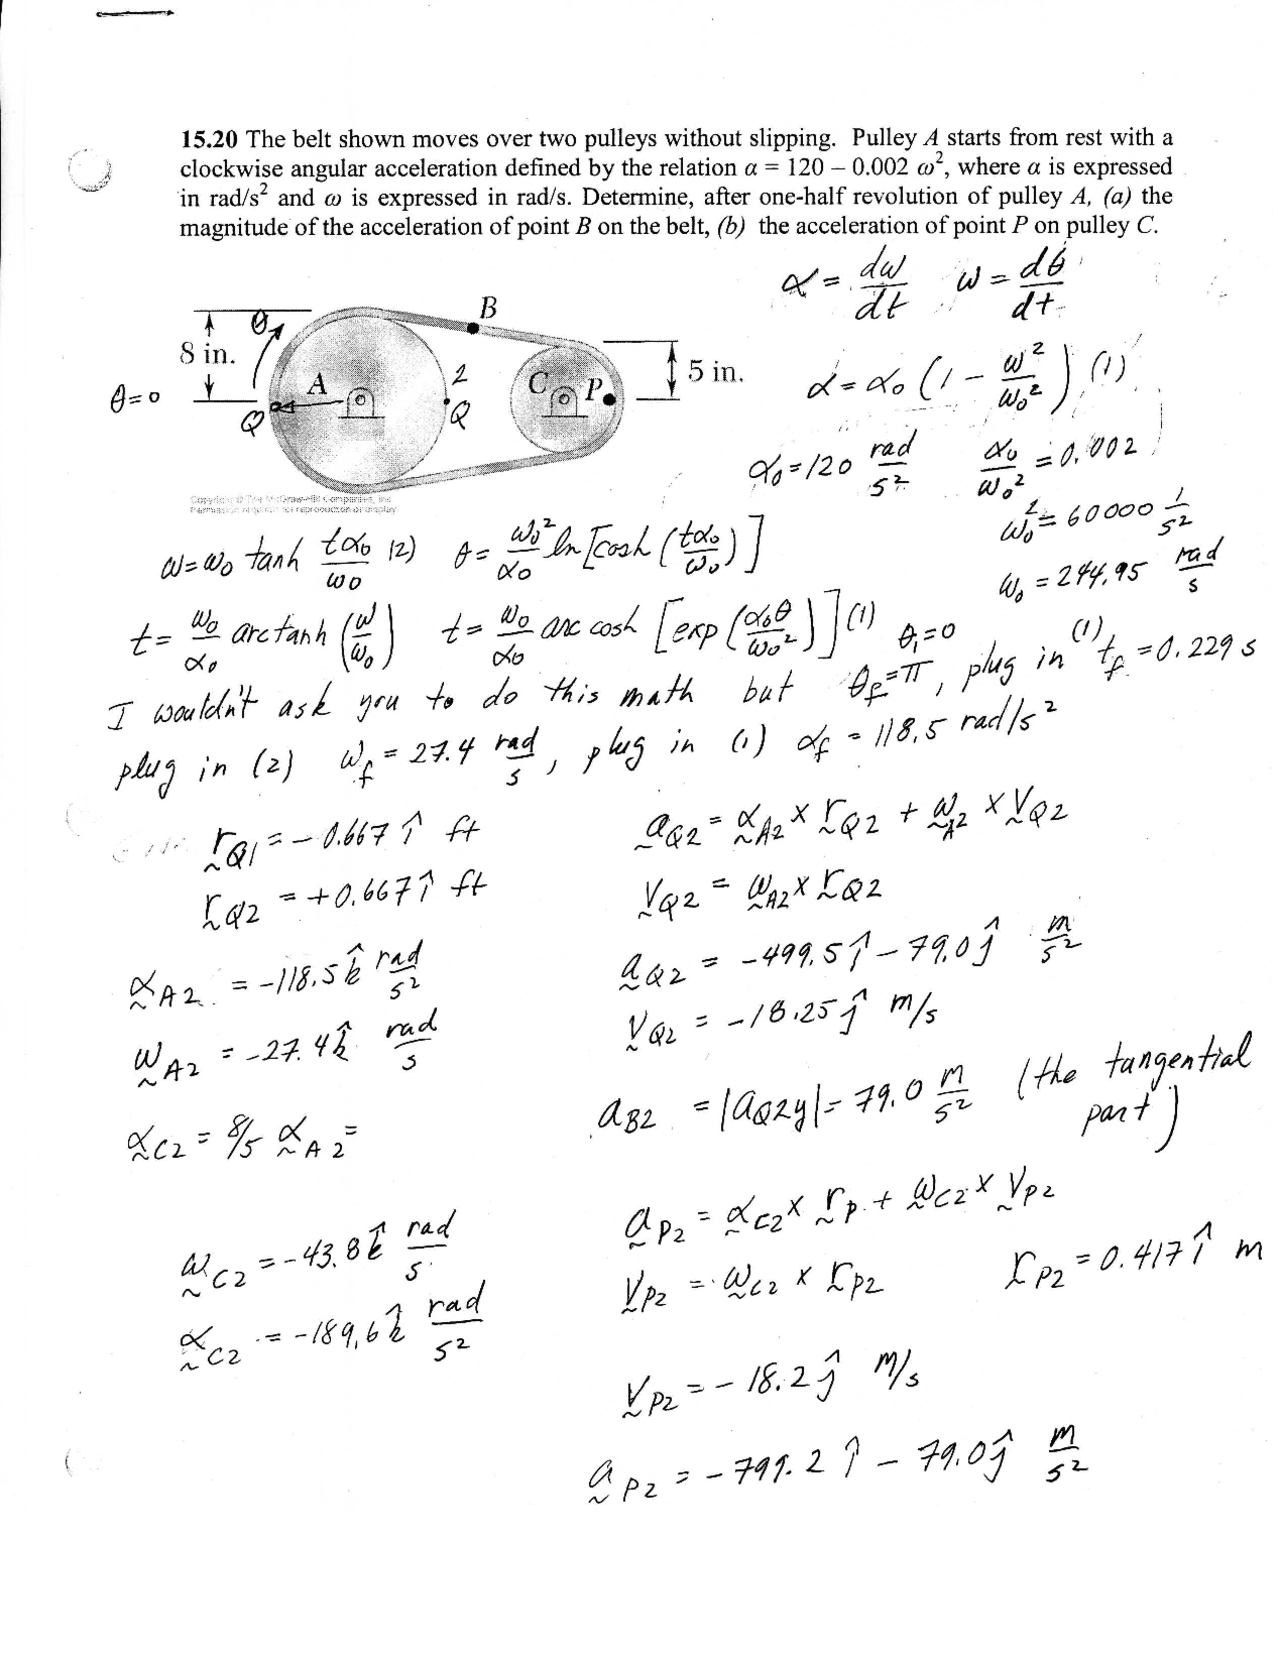 15.20 The belt shown moves over two pulleys without slipping. Pulley A starts from rest with a
clockwise angular acceleration defined by the relation α = 120 – 0.002 ω², where α is expressed
in rad/s² and ω is expressed in rad/s. Determine, after one-half revolution of pulley A, (a) the
magnitude of the acceleration of point B on the belt, (b) the acceleration of point P on pulley C.
α = dω/dt ω = dθ/dt
8 in.
θ
B
θ=0
A
Q
2
Q
C
P
5 in.
α = α₀ (1 - ω²/ω₀²) (1)
α₀ = 120 rad/s² α₀/ω₀² = 0.002
ω₀² = 60000 1/s²
ω = ω₀ tanh tα₀/ω₀ (2) θ = ω₀²/α₀ ln [cosh (tα₀/ω₀)]
ω₀ = 244.95 rad/s
t = ω₀/α₀ arctanh (ω/ω₀) t = ω₀/α₀ arc cosh [exp (α₀θ/ω₀²)] (1) θ₁=0
I wouldn't ask you to do this math but θf=π, plug in (1) tf = 0.229 s
plug in (2) ωf = 27.4 rad/s, plug in (1) αf = 118.5 rad/s²
rQ1 = - 0.667 î ft
rQ2 = +0.667 î ft
αA2 = -118.5 k̂ rad/s²
ωA2 = -27.4 k̂ rad/s
αC2 = 8/5 αA2 =
ωC2 = -43.8 k̂ rad/s
αC2 = -189.6 k̂ rad/s²
aQ2 = αA2 × rQ2 + ωA2 × VQ2
VQ2 = ωA2 × rQ2
aQ2 = -499.5 î - 79.0 ĵ m/s²
VQ2 = -18.25 ĵ m/s
aB2 = |aQ2y| = 79.0 m/s² (the tangential
part)
aP2 = αC2 × rP + ωC2 × VP2
VP2 = ωC2 × rP2 rP2 = 0.417 î m
VP2 = - 18.2 ĵ m/s
aP2 = -799.2 î - 79.0 ĵ m/s²